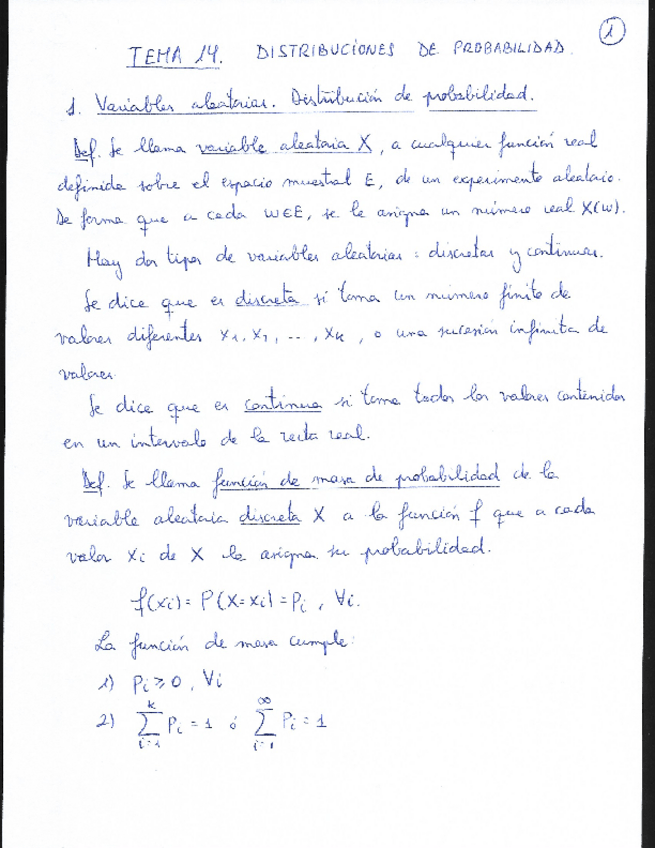 1
TEMA 14. DISTRIBUCIONES DE PROBABILIDAD.
1. Variables aleatorias. Distribución de probabilidad.
Def. Se llama variable aleatoria X, a cualquier función real
definida sobre el espacio muestral E, de un experimento aleatorio.
De forma que a cada w∈E, se le asigna un número real X(w).
Hay dos tipos de variables aleatorias: discretas y continuas.
Se dice que es discreta si toma un número finito de
valores diferentes x₁, x₂, ..., xₖ, o una sucesión infinita de
valores.
Se dice que es continua si toma todos los valores contenidos
en un intervalo de la recta real.
Def. Se llama función de masa de probabilidad de la
variable aleatoria discreta X a la función f que a cada
valor xᵢ de X le asigna su probabilidad.
f(xᵢ) = P(X=xᵢ) = Pᵢ, ∀i.
La función de masa cumple:
1) Pᵢ ≥ 0, ∀i
2) ∑_{i=1}^{k} Pᵢ = 1 ó ∑_{i=1}^{∞} Pᵢ = 1